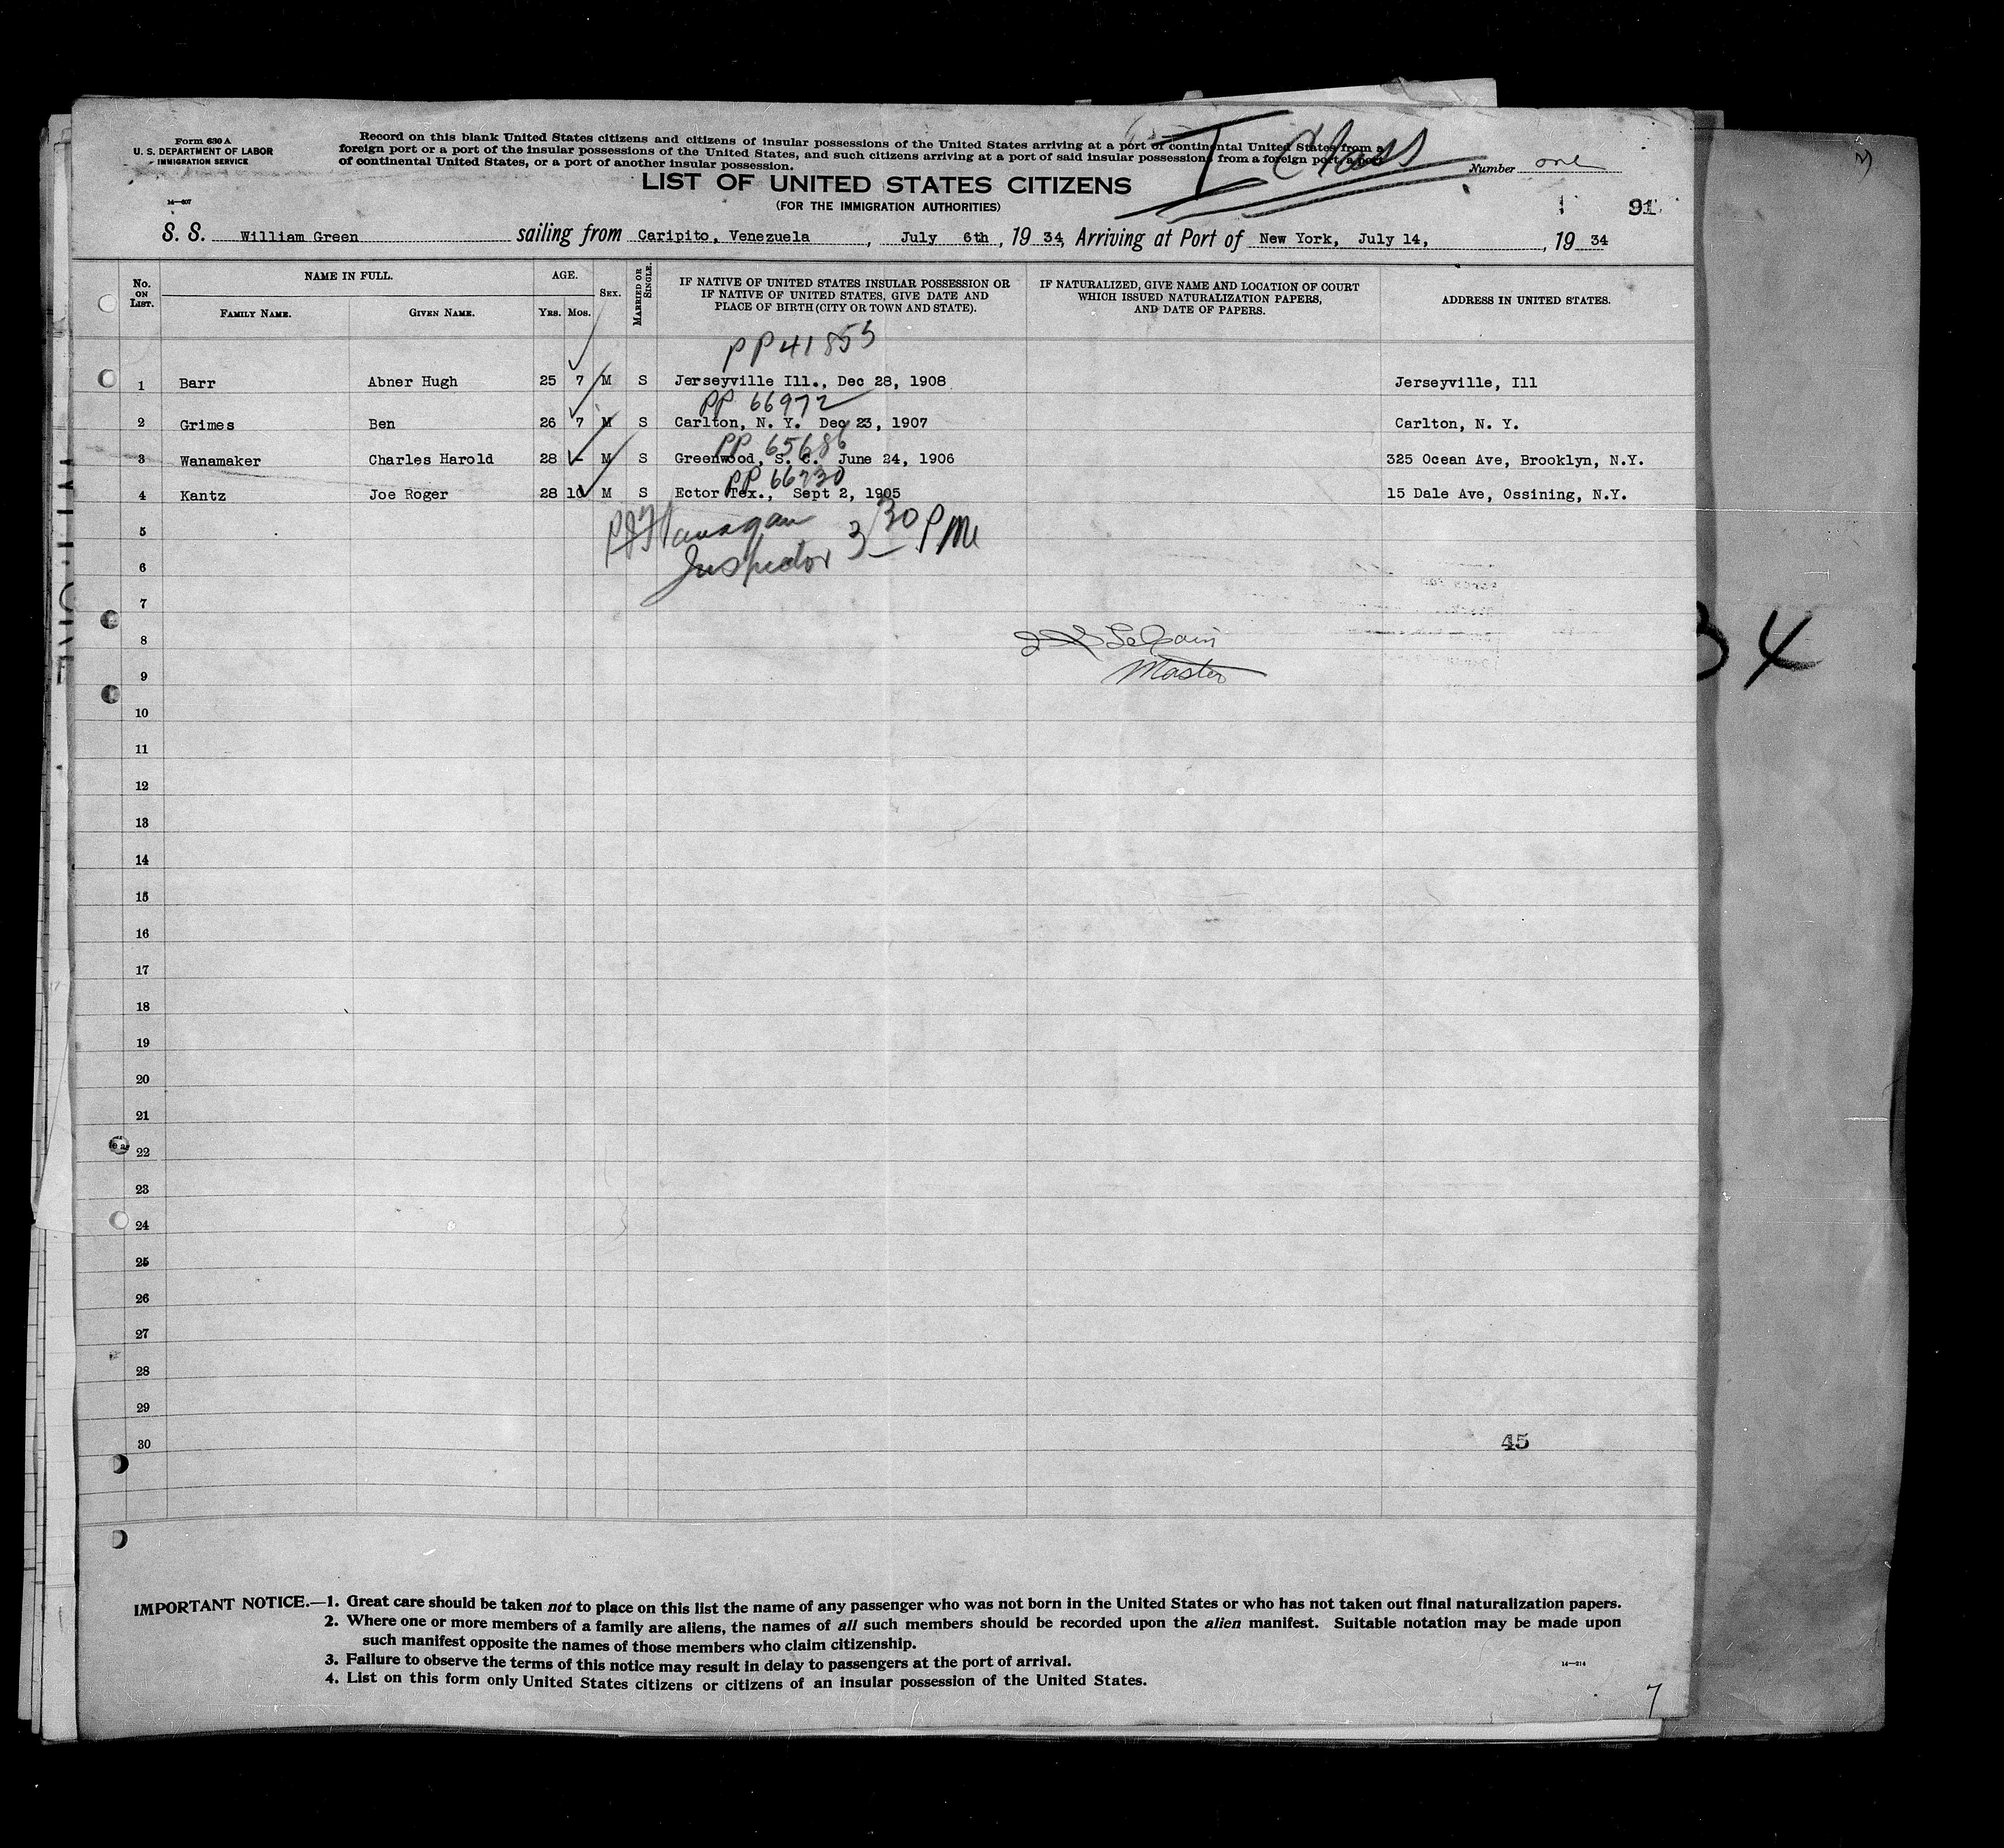 Form 630 A
U. S. DEPARTMENT OF LABOR
IMMIGRATION SERVICE
14—607
Record on this blank United States citizens and citizens of insular possessions of the United States arriving at a port of continental United States from a
foreign port or a port of the insular possessions of the United States, and such citizens arriving at a port of said insular possessions from a foreign port, a port
of continental United States, or a port of another insular possession.
I Class
Number one
LIST OF UNITED STATES CITIZENS
(FOR THE IMMIGRATION AUTHORITIES)
91
S. S. William Green sailing from Caripito, Venezuela, July 6th, 19 34, Arriving at Port of New York, July 14, , 19 34
No. ON LIST. NAME IN FULL. AGE. SEX. MARRIED OR SINGLE. IF NATIVE OF UNITED STATES INSULAR POSSESSION OR IF NATIVE OF UNITED STATES, GIVE DATE AND PLACE OF BIRTH (CITY OR TOWN AND STATE). IF NATURALIZED, GIVE NAME AND LOCATION OF COURT WHICH ISSUED NATURALIZATION PAPERS, AND DATE OF PAPERS. ADDRESS IN UNITED STATES.
FAMILY NAME. GIVEN NAME. YRS. MOS.
PP 41853
1 Barr Abner Hugh 25 7 M S Jerseyville Ill., Dec 28, 1908 Jerseyville, Ill
PP 66972
2 Grimes Ben 26 7 M S Carlton, N. Y. Dec 23, 1907 Carlton, N. Y.
PP 65686
3 Wanamaker Charles Harold 28 - M S Greenwood, S. C. June 24, 1906 325 Ocean Ave, Brooklyn, N.Y.
PP 66730
4 Kantz Joe Roger 28 10 M S Ector Tex., Sept 2, 1905 15 Dale Ave, Ossining, N.Y.
5 Flanagan 3 30 PM
6 Inspector
7
8
9 Master
10
11
12
13
14
15
16
17
18
19
20
21
22
23
24
25
26
27
28
29
30
45
34
IMPORTANT NOTICE.—1. Great care should be taken not to place on this list the name of any passenger who was not born in the United States or who has not taken out final naturalization papers.
2. Where one or more members of a family are aliens, the names of all such members should be recorded upon the alien manifest. Suitable notation may be made upon
such manifest opposite the names of those members who claim citizenship.
3. Failure to observe the terms of this notice may result in delay to passengers at the port of arrival.
4. List on this form only United States citizens or citizens of an insular possession of the United States.
14—214
7